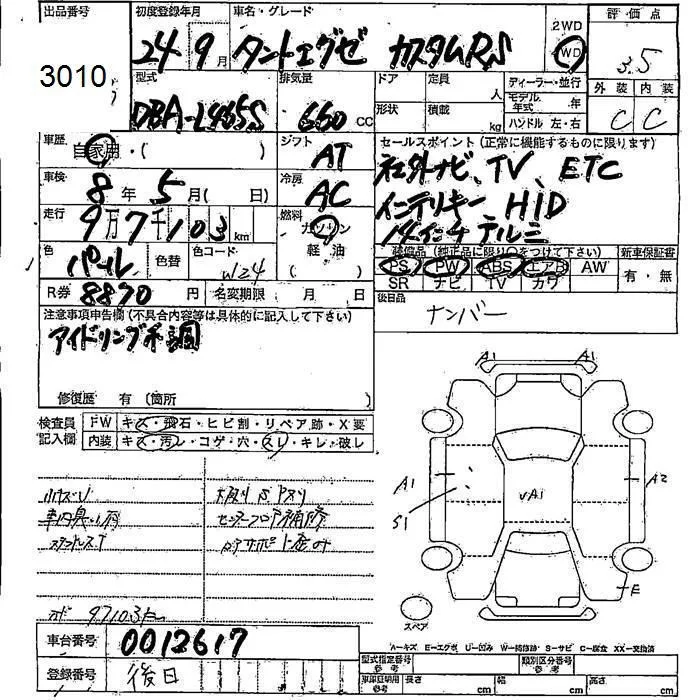 出品番号 初度登録年月 車名・グレード 2WD 評価点
3010 24 9月 タントエグゼ カスタムRS WD 3.5
型式 排気量 ドア 定員 人 ディーラー・並行 外装 内装
DBA-L465S 660 CC 形状 積載 kg モデル年式 年 C C
ハンドル 左・右
車歴 自家用・( ) シフト AT セールスポイント(正常に機能するものに限ります)
社外ナビ、TV、ETC
車検 8年 5月( 日) 冷房 AC インテリキー、HID
走行 9万7千103km 燃料 ガソリン 14インチアルミ
軽油
( )
色 パール 色替 色コード W24 装備品(純正品に限り○をつけて下さい) 新車保証書
PS PW ABS エアB AW 有・無
SR ナビ TV カワ
R券 8870円 名変期限 月 日 後日品
ナンバー
注意事項申告欄(不具合内容等は具体的に記入して下さい)
アイドリング不調
修復歴 有(箇所
検査員記入欄 FW キズ・飛石・ヒビ割・リペア跡・X要
内装 キズ・汚レ・コゲ・穴・スレ・キレ・破レ
小キズU
A1 A1
A1 A2
S1 vA1
E
スペア
97103km
車台番号 0012617
登録番号 後日
A=キズ E=エグボ U=凹み W=補修跡 S=サビ C=腐食 XX=交換済
型式指定番号 参考 類別区分番号 参考
車庫証明用 参考 長さ cm 幅 cm 高さ cm